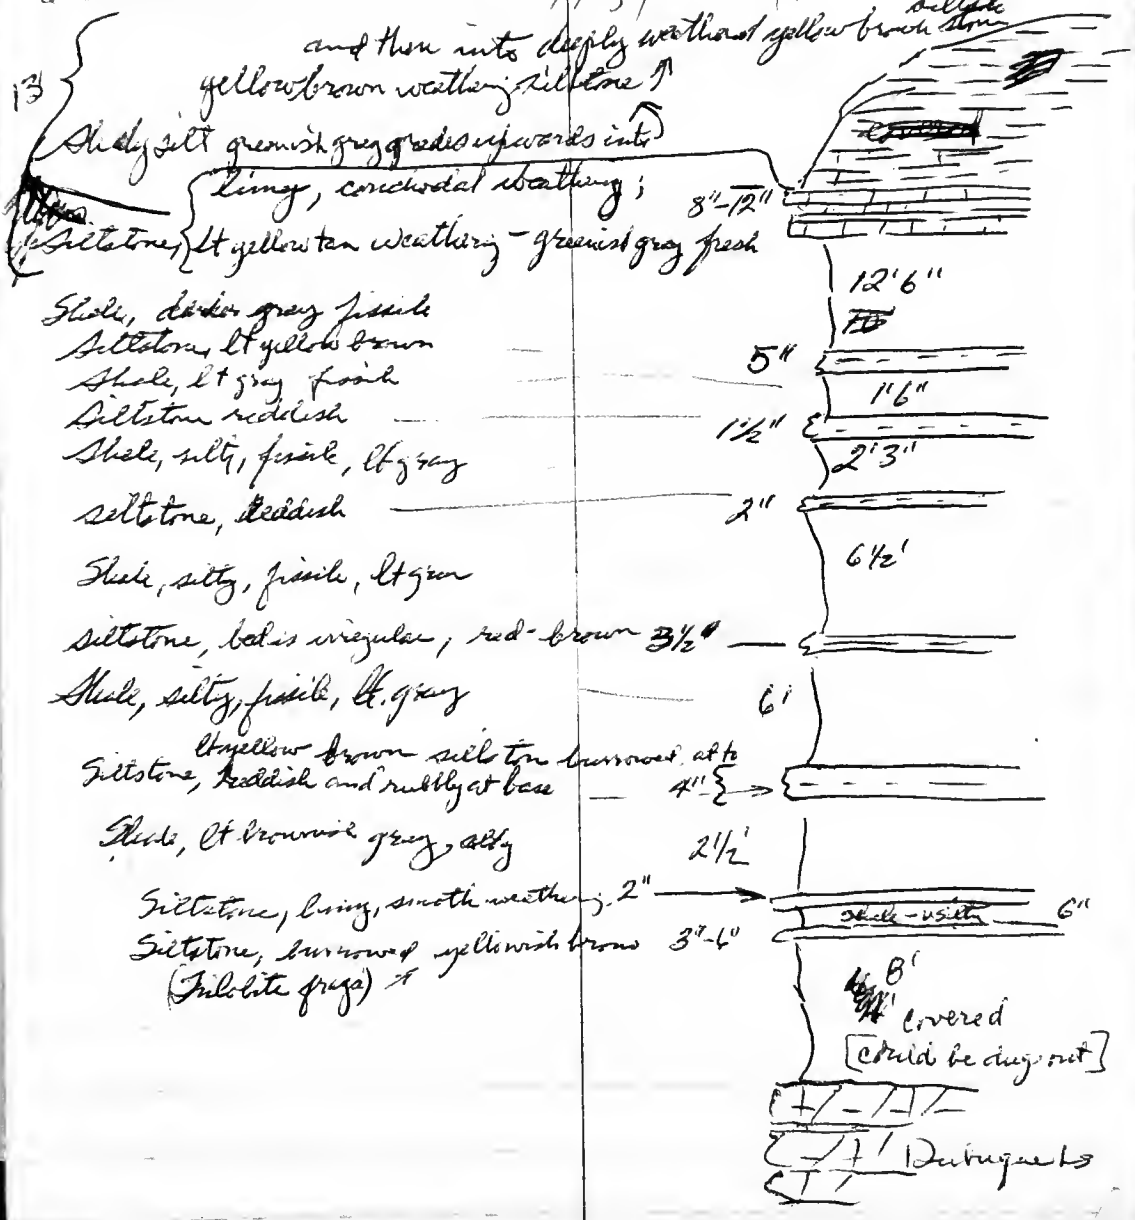 siltstone
and then into deeply weathered yellow brown
13
yellow brown weathering siltstone ↑
Shaly silt greenish gray grades upwards into
limy, conchodal weathering; 8"-12"
Siltstone, lt yellow tan weathering - greenish gray fresh
12'6"
Shale, darker gray fissile
Siltstone, lt yellow brown 5"
Shale, lt gray fissile 1'6"
Siltstone reddish 1½"
Shale, silty, fissile, lt gray 2'3"
siltstone, reddish 2"
Shale, silty, fissile, lt gray 6½'
siltstone, bed is irregular, red-brown 3½"
Shale, silty, fissile, lt. gray 6'
lt yellow brown siltston burrowed at to
Siltstone, reddish and rubbly at base 4"
Shale, lt brownish gray, silty 2½'
Siltstone, limy, smooth weathering. 2"
shale - v silty 6"
Siltstone, burrowed yellowish brown 3"-6"
(Trilobite frags)
8'
covered
[could be dug out]
Dubuque Ls